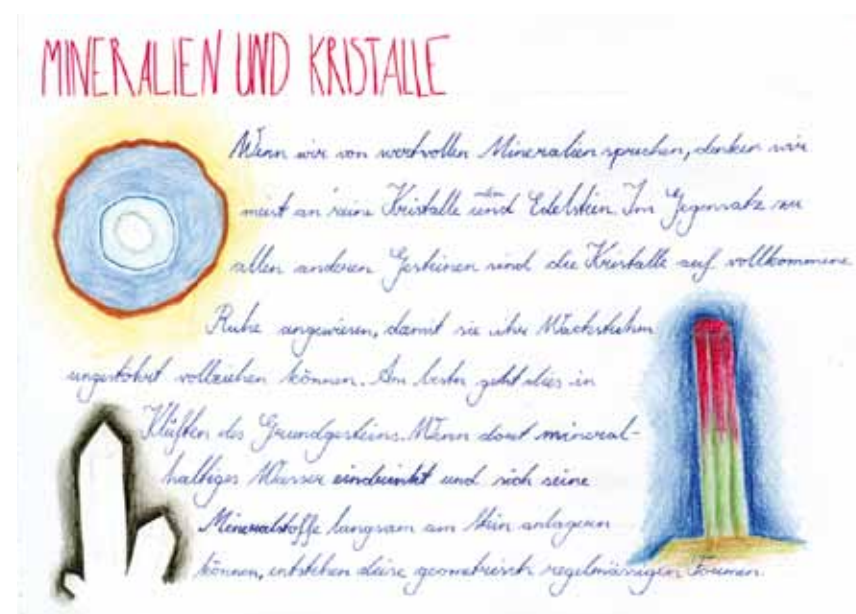 MINERALIEN UND KRISTALLE
Wenn wir von wertvollen Mineralien sprechen, denken wir
meist an reine Kristalle oder und Edelstein. Im Gegensatz zu
allen anderen Gesteinen sind die Kristalle auf vollkommene
Ruhe angewiesen, damit sie ihr
vollziehen können. Am besten geht dies in
Klüften des Grundgesteins. Wenn dort mineral-
haltiges Wasser und sich seine
Mineralstoffe langsam am Stein anlagern
können, entstehen diese geometrisch regelmässigen Formen.